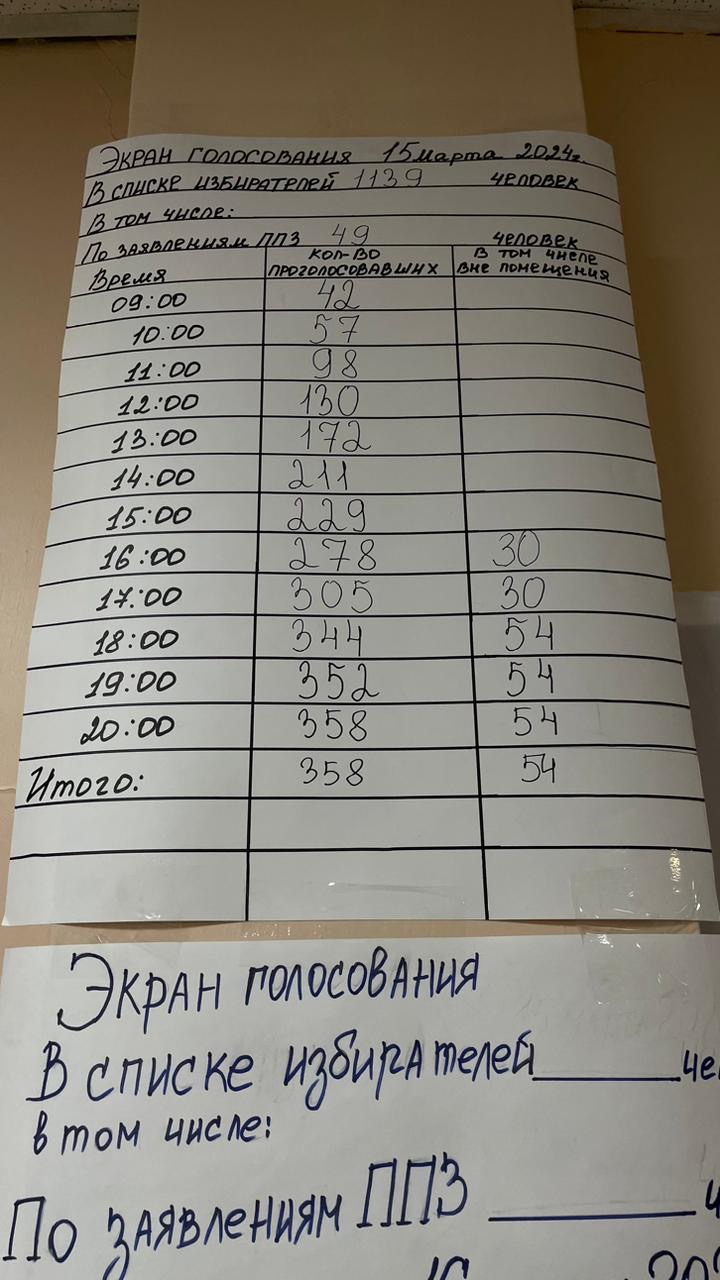 Экран голосования 15 марта 2024г.
В списке избирателей 1139 человек
В том числе:
По заявлениям ППЗ 49 человек
Время Кол-во проголосовавших В том числе вне помещения
09:00 42
10:00 57
11:00 98
12:00 130
13:00 172
14:00 211
15:00 229
16:00 278 30
17:00 305 30
18:00 344 54
19:00 352 54
20:00 358 54
Итого: 358 54
Экран голосования
В списке избирателей
в том числе:
По заявлениям ППЗ